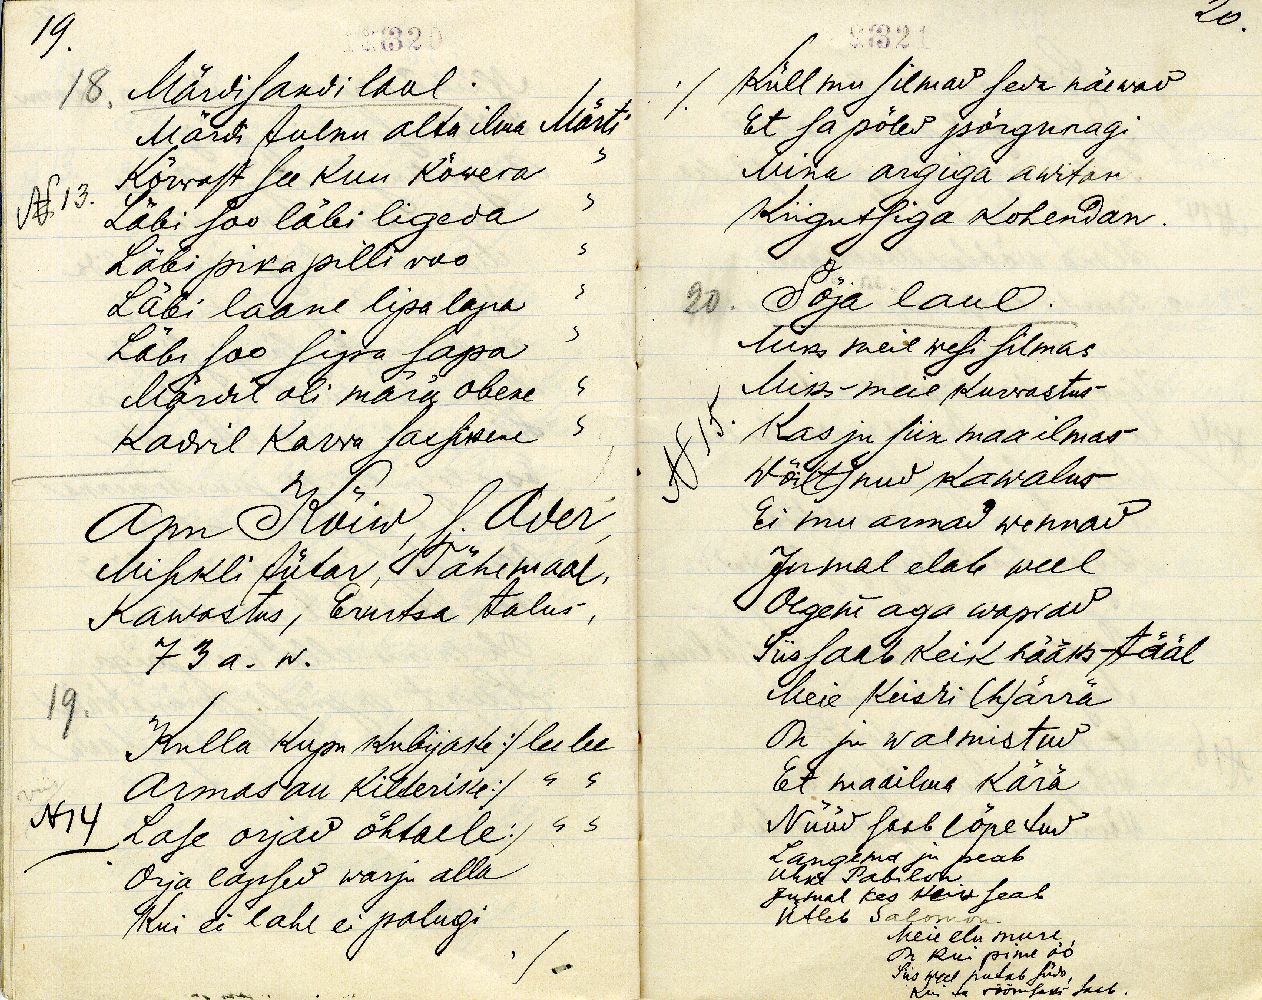 19.
18. Märdisandi laul.
Märdi tulnu alta ilma Märti
Kõrvast see Kuu Kõwera "
№ 13.
Läbi soo läbi ligeda "
Läbi pika pilli roo "
Läbi laane lipa lapa "
Läbi soo sipra sapa "
Märdil oli mära obene "
Kadril Karva
Ann Kõiw, s. Ader,
Mihkli tütar, Tähemaal,
Kawastus, talus,
73 a. w.
19.
Kulla kupu kubijaske :/ lee lee
Armas au Kilterike :/ " "
№ 14
Lase orjad õhtaele :/ " "
Orja lapsed warju alla
Kui ei lase ei palugi
./.
20.
./. Küll mu silmad seda näewad
Et sa põled põrgunagi
Mina argiga awitan
Kiigutsiga Kohendan.
20. Sõja laul.
Miks meil wesi silmas
Miks meie kurrastus
№ 15.
Kas ju siin maailmas
Või(t)nud Kawalus
Ei mu armad wennad
Jumal elab weel
Olgem aga waprad
Siis saab Keik hääks tääl
Meie Keisri (h)ärrä
On ju walmistud
Et maailma Kärä
Nüüd saab lõpetud
Langema ju peab
Uhke Pabilon
Jumal kes Keik seab
Ütleb Salomon.
Meie elu mure,
On kui pime öö
Siis weel putab südo,
Kui ta rõõmsast saab.